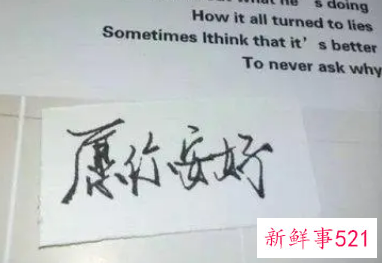 doing
How it all turned to lies
Sometimes Ithink that it's better
To never ask why
愿你安好
新鲜事521